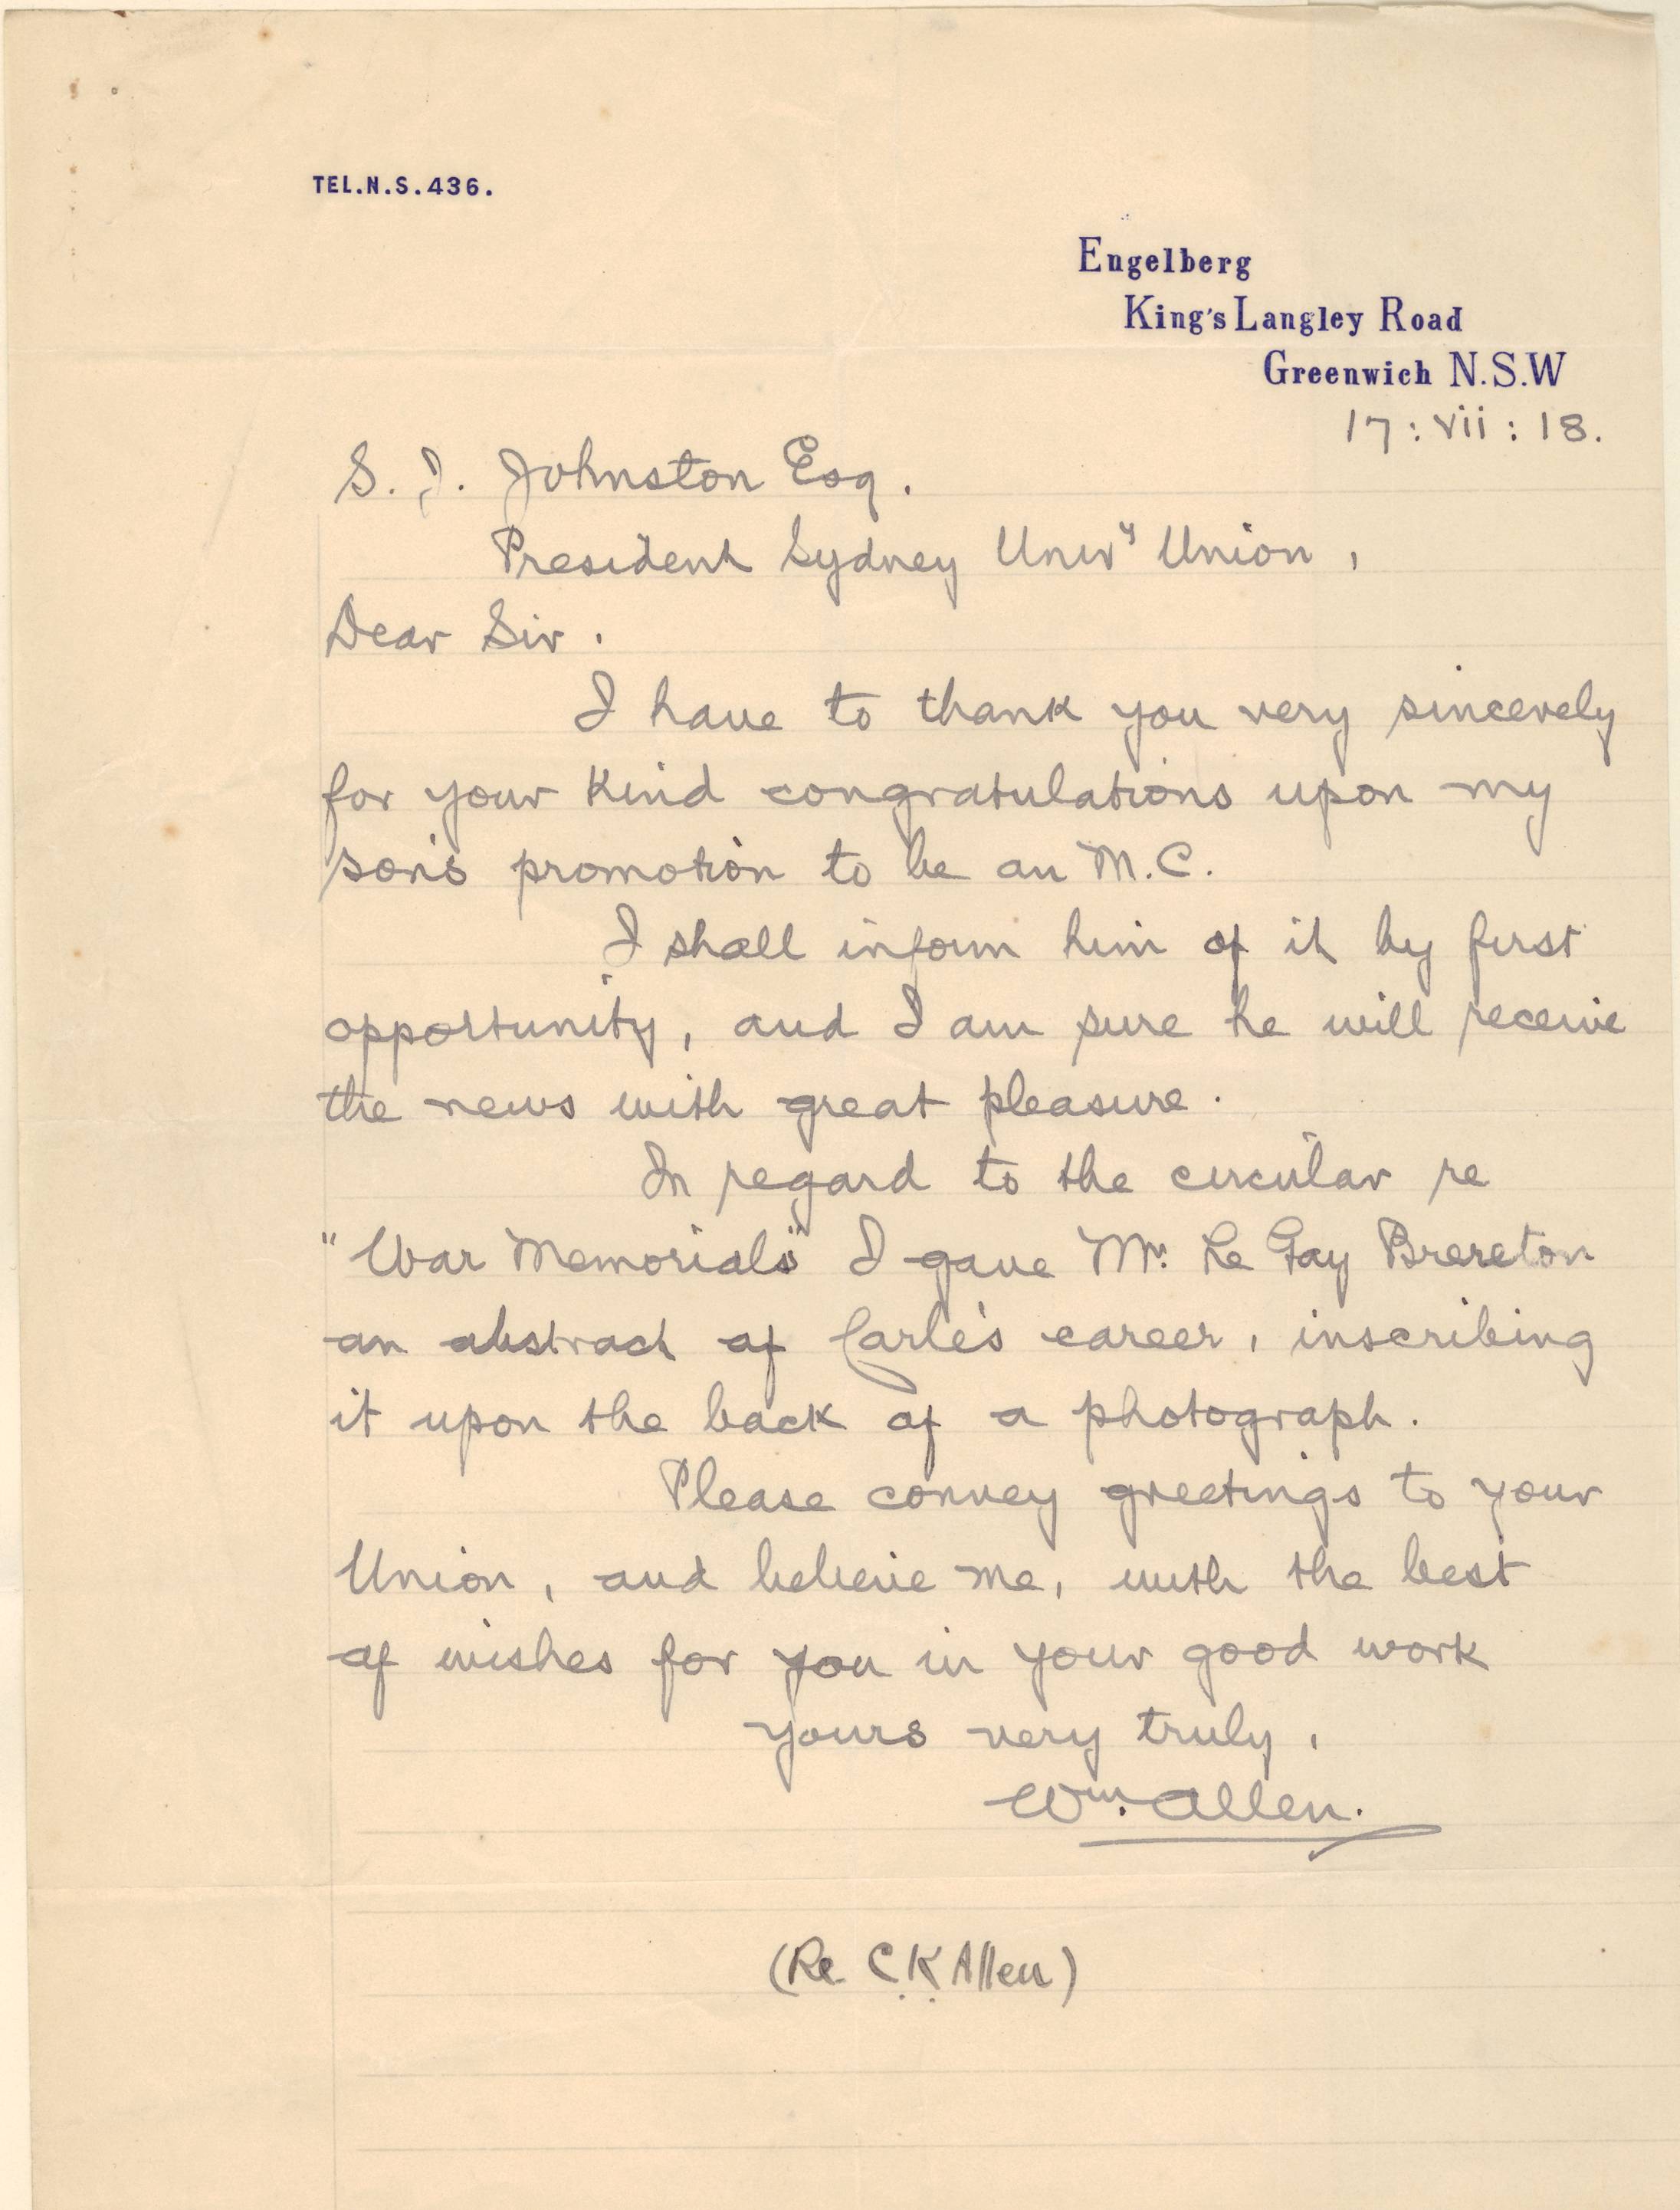 TEL.N.S.436.
Engelberg
King's Langley Road
Greenwich N.S.W
17 : vii : 18.
S. J. Johnston Esq.
President Sydney Univ^y Union,
Dear Sir.
I have to thank you very sincerely
for your kind congratulations upon my
son's promotion to be an M.C.
I shall inform him of it by first
opportunity, and I am sure he will receive
the news with great pleasure.
In regard to the circular re
"War Memorials" I gave Mr. Le Gay Brereton
an abstract of Carle's career, inscribing
it upon the back of a photograph.
Please convey greetings to your
Union, and believe me, with the best
of wishes for you in your good work
yours very truly,
Wm. Allen.
(Re C.K. Allen)